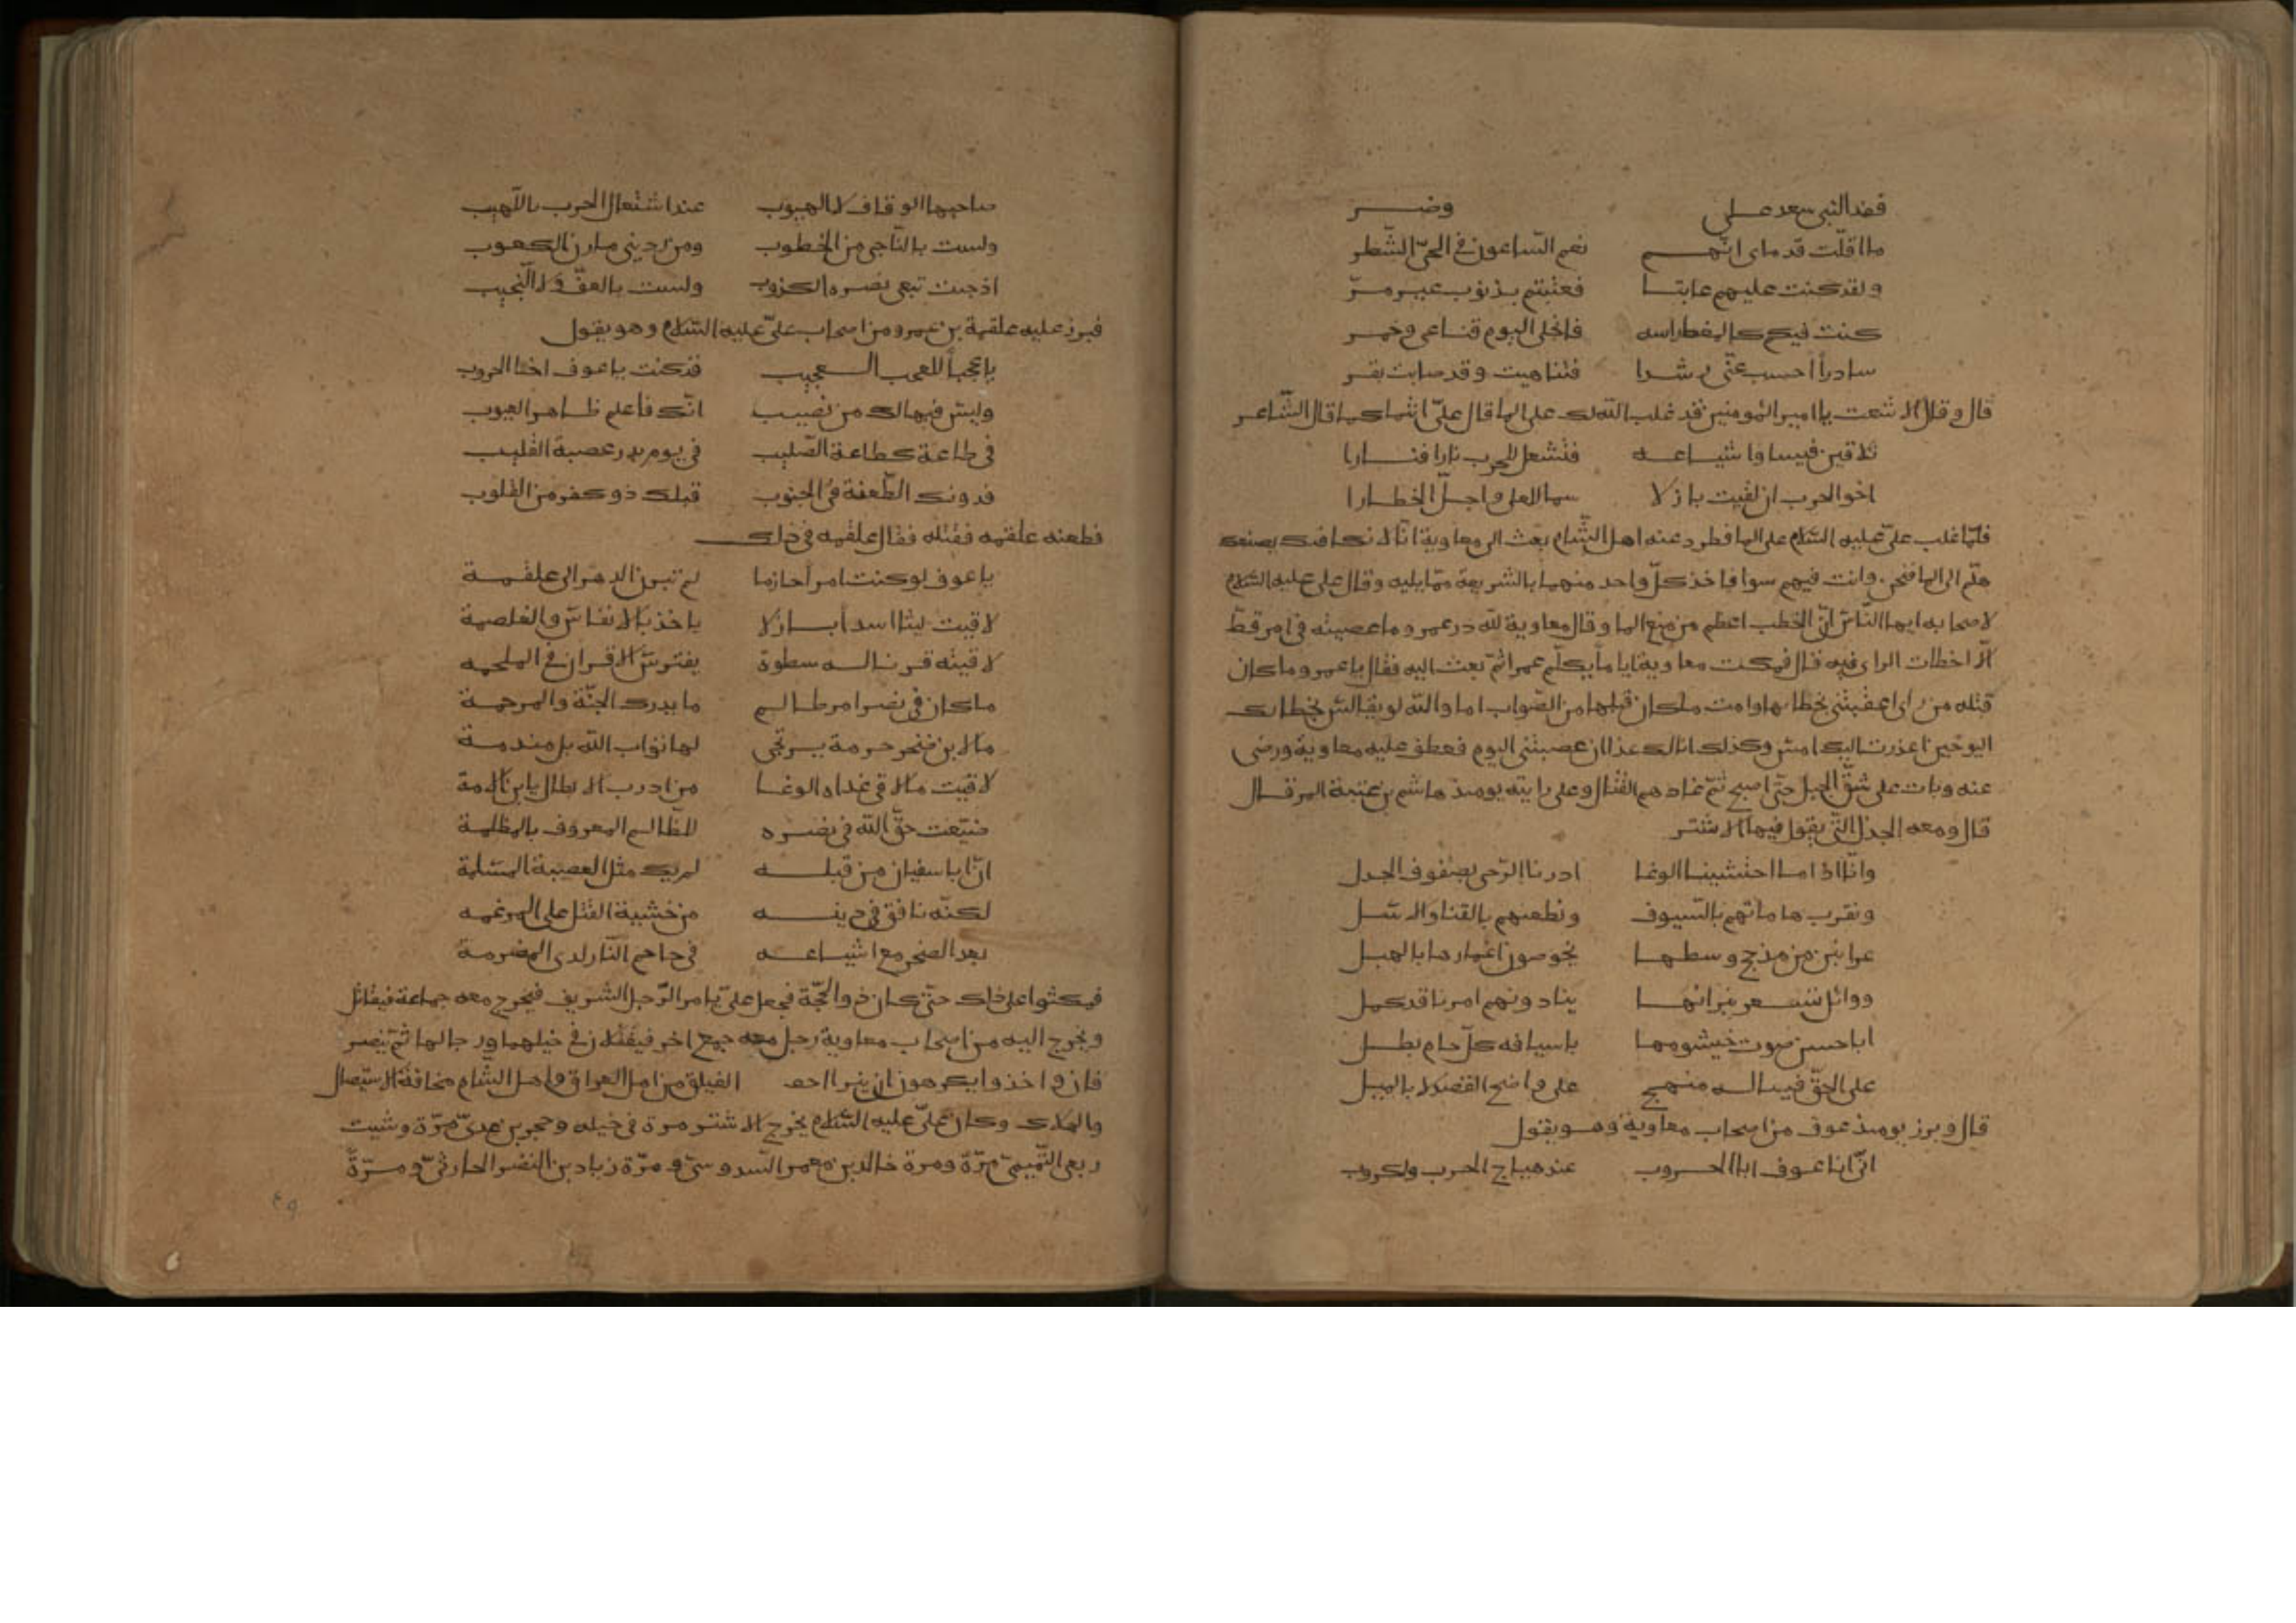 فغدا النبي سعد علي وضر
ما اقلت قدماى انهم نعم الساعون فى الحىّ الشطر
ولقد كنت عليهم عاتبا فعنبتم بذنوب غير مرّ
كنت فيكم كالمغط راسه فانجلى اليوم قناعى وخمر
سادراً احسب غيّى رشدا فتناهيت وقد صابت بقر
قال وقال الاشعت يا امير المومنين قد غلب الله لك على الما قال علىّ انتما كما قال الشاعر
تلاقين قيسا واشياعه فتشعل للحرب نارا فنارا
اخو الحرب ان لقيت بازلا سما للعلى واجلّ الخطارا
فلمّا غلب علىّ عليه السّلام على الما فطرد عنه اهل الشّام بعث الى معاوية انّا لا نكافيك بصنعك
هلّم الى الما فنحن وانت فيهم سوا فاخذ كلّ واحد منهما بالشريعة ممّا يليه وقال على عليه السّلام
لاصحابه ايها النّاس انّ الخطب اعظم من منع الما وقال معاوية للّه در عمرو ما عصيته فى امر قطّ
الّا اخطات الراى فيه قال فمكث معاوية اياماً يكلّم عمرا ثمّ بعث اليه فقال يا عمرو ما كان
قتله من راى اعقبتنى بخطائها وامت ما كان قبلها من الصّواب اما والله لو يقالس بخطائك
اليوم حين اعذرت اليك امس وكذلك انا لك غدا ان عصيتنى اليوم فعطف عليه معاوية ورضى
عنه وبات على شقّ الجبل حتّى اصبح ثمّ غاداهم القتال وعلى رايته يومئذ هاشم بن عتبة المرقال
قال ومعه الجدل التّى يقول فيها الاشتر
وانّا اذا ما احتشينا الوغا ادرنا الرّحى بصنوف الجدل
ونقرب هاماتهم بالسّيوف ونطعنهم بالقنا والاسل
عرانين من مذحج وسطها يخوضون اغمارها بالهبل
ووائل تسعر نيرانها ينادونهم امرنا قد كمل
ابا حسن صوت خيشومها باسيافه كلّ حام بطل
على الحقّ فينا له منهج على واضح القصد لا بالميل
قال وبرز يومئذ عوف من اصحاب معاوية وهو يقول
انّى انا عوف ابا الحروب عند هياج الحرب ولكروب
صاحبها الوقاف لا الهيوب عند اشتعال الحرب باللّهيب
ولست بالنّاجى من الخطوب ومن ردينى مارن الكعوب
اذ جئت تبغى نصره الكذوب ولست بالعفّ ولا النّجيب
فبرز عليه علقمة بن عمرو من اصحاب علىّ عليه السّلام وهو يقول
يا عجباً للعجب العجيب قد كنت يا عوف اخا الحروب
وليس فيها لك من نصيب انّك فاعلم ظاهر العيوب
فى طاعة كطاعة الصّليب فى يوم بدر عصبة القليب
فدونك الطّعنة فى الجنوب قبلك ذو كفر من القلوب
فطعنه علقمه فقتله فقال علقمه فى ذلك
يا عوف لو كنت امرأ حازما لم تبرز الدهر الى علقمة
لاقيت ليثا اسداً باسلا ياخذ بالانفاس والغلصمة
لاقيته قرنا له سطوة يفترس الاقران فى الملحمه
ما كان فى نصر امر ظالم ما يدرك الجنّة والمرحمة
ما لابن صخر حرمة يرتجى لها ثواب الله بل مندمة
لاقيت ما لاقى غداه الوغا من ادرب الابطال يا بن الامة
ضيّعت حقّ الله فى نصره للظّالم المعروف بالمظلمة
انّ ابا سفيان من قبله لم يك مثل العصبة المسلمة
لكنّه نافق فى دينه من خشية القتل على المرغمه
بعد الصخر مع اشياعه فى جاحم النّار لدى المضرمة
فمكثوا على ذلك حتّى كان ذو الحجّة فجعل علىّ يامر الرّجل الشريف فيخرج معه جماعة فيقاتل
ويخرج اليه من اصحاب معاوية رجل معه جمع اخر فيقتتلان فى خيلهما ورجالها ثمّ ينصر
فان واخذوا يكرهون ان الفيلق من اهل العراق واهل الشّام مخافة الاستيصال
والهلاك وكان علىّ عليه السّلام يخرج الاشتر مرة فى خيله وحجر بن عدىّ مرّة وشبت
ربعى التّميمىّ مرّة ومرة خالد بن معمر السّدوسىّ ومرّة زياد بن النضر الحارثىّ ومرّة